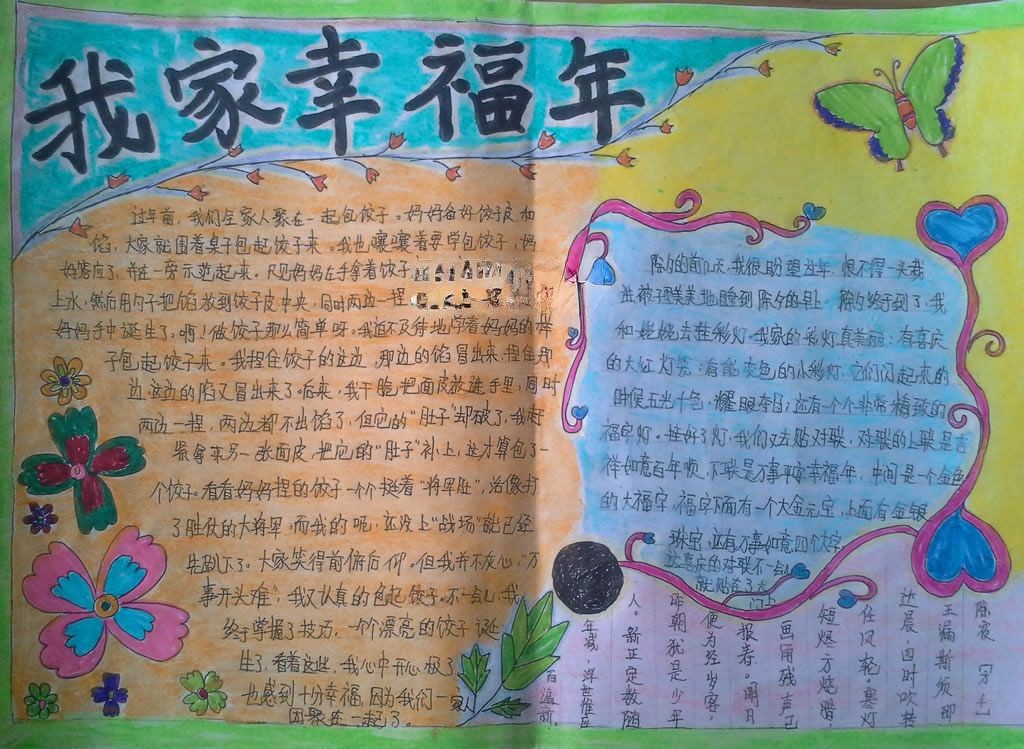 我家幸福年
过年前，我们全家人聚在一起包饺子。妈妈备好饺子皮和
馅，大家就围着桌子包起饺子来。我也嚷嚷着要学包饺子，妈
妈答应了，并在一旁示范起来。只见妈妈左手拿着饺子
上水，然后用勺子把馅放到饺子皮中央，同时两边一捏
妈妈手中诞生了。啊！做饺子那么简单呀。我迫不及待地学着妈妈的样
子包起饺子来。我捏住饺子的这边，那边的馅冒出来，捏住那
边，这边的馅又冒出来了。后来，我干脆把面皮放进手里，同时
两边一捏，两边都不出馅了，但它的“肚子”却破了，我赶
紧拿来另一张面皮，把它的“肚子”补上，这才算包了一
个饺子。看看妈妈捏的饺子一个个挺着“将军肚”，治像打
了胜仗的大将军，而我的呢，立没上“战场”就已经
先倒下了。大家笑得前俯后仰。但我并不灰心，“万
事开头难”，我又认真的包起饺子。不一会儿，我
终于掌握了技巧，一个漂亮的饺子诞
生了。看着这些，我心中开心极了
也感到十分幸福，因为我们一家人
团聚在一起了。
除夕的前几天，我很盼望过年，恨不得一头栽
进被子里美美地睡到除夕的早上。除夕终于到了，我
和姥姥去挂彩灯。我家的彩灯真美丽：有喜庆
的大红灯笼；有能变色的小彩灯，它们闪起来的
时候五光十色，耀眼夺目；还有一个个非常精致的
福字灯。挂好了灯，我们又去贴对联，对联的上联是吉
祥如意百年顺，下联是万事平安幸福年，中间是一个金色
的大福字，福字下面有一个大金元宝，上面有金银
珠宝，立有万事如意四个大字
这喜庆的对联不一会儿
就贴在了大
门上
除夜
王湮斯须即
达晨，四时吹转
任风轮。寒灯
短烬方烧腊，
画角残声已
报春。明日
便为经岁客，
昨朝犹是少年
人。新正定数随
年减，浮世惟应
百遍新。